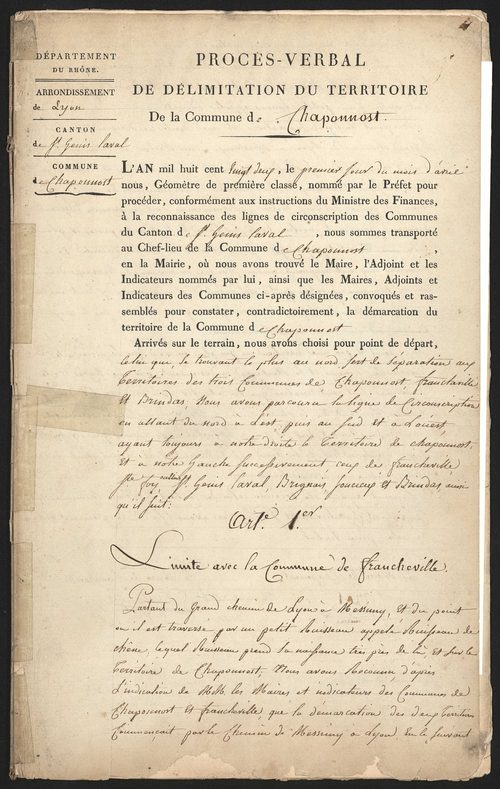 DÉPARTEMENT
DU RHÔNE.
ARRONDISSEMENT
de Lyon
CANTON
de St. Genis Laval
COMMUNE
de Chaponnost
PROCÈS-VERBAL
DE DÉLIMITATION DU TERRITOIRE
De la Commune de Chaponnost.
L'AN mil huit cent vingt deux, le premier jour du mois d'avril
nous, Géomètre de première classe, nommé par le Préfet pour
procéder, conformément aux instructions du Ministre des Finances,
à la reconnaissance des lignes de circonscription des Communes
du Canton de St. Genis Laval , nous sommes transporté
au Chef-lieu de la Commune de Chaponnost ,
en la Mairie, où nous avons trouvé le Maire, l'Adjoint et les
Indicateurs nommés par lui, ainsi que les Maires, Adjoints et
Indicateurs des Communes ci-après désignées, convoqués et ras-
semblés pour constater, contradictoirement, la démarcation du
territoire de la Commune de Chaponnost
Arrivés sur le terrain, nous avons choisi pour point de départ,
celui qui, se trouvant le plus au nord sert de séparation aux
Territoires des trois Communes de Chaponnost, francheville
et Brindas, Nous avons parcouru la ligne de Circonscription
en allant du nord a l'est, puis au Sud et a l'ouest,
ayant toujours a notre droite le Territoire de chaponnost,
et a notre Gauche successivement ceux de francheville,
Ste foy St. Genis Laval, Brignais, Soucieux et Brindas ainsi
qu'il suit:
Arte. 1.er
Limite avec la Commune de francheville.
Partant du Grand chemin de Lyon à Messimy, et du point
ou il est traversé par un petit Ruisseau appelé Ruisseau de
chêne, lequel Ruisseau prend sa naissance très près de là et sur le
Territoire de Chaponnost, Nous avons Reconnu d'après
L'indication de MM. les Maires et indicateurs des Communes de
Chaponnost et francheville, que la démarcation des deux Territoires
Commençait par le Chemin de Messimy a Lyon, en le suivant